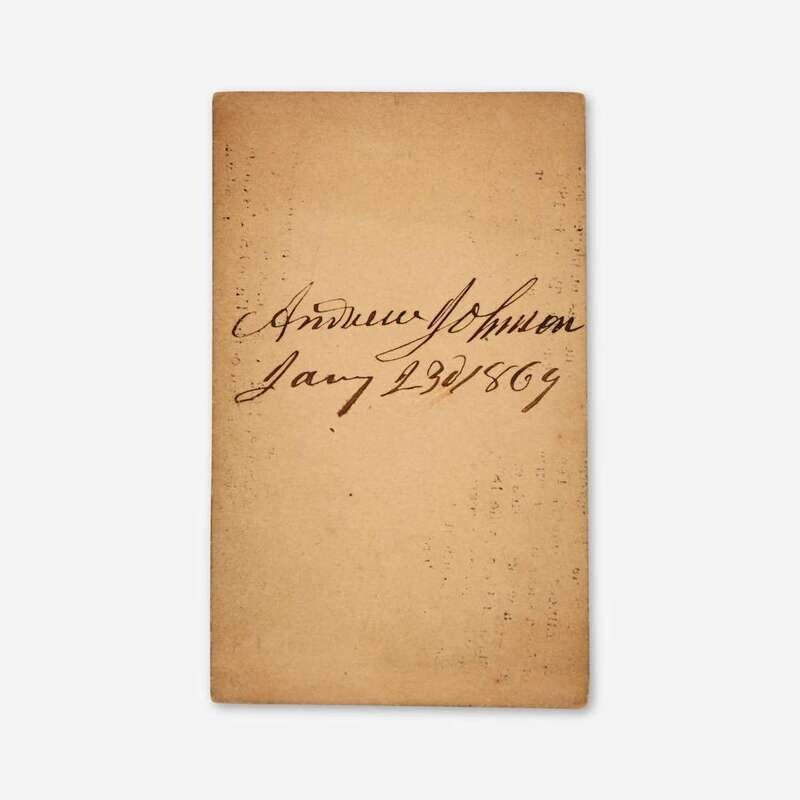 Andrew Johnson
Jany 23d 1869